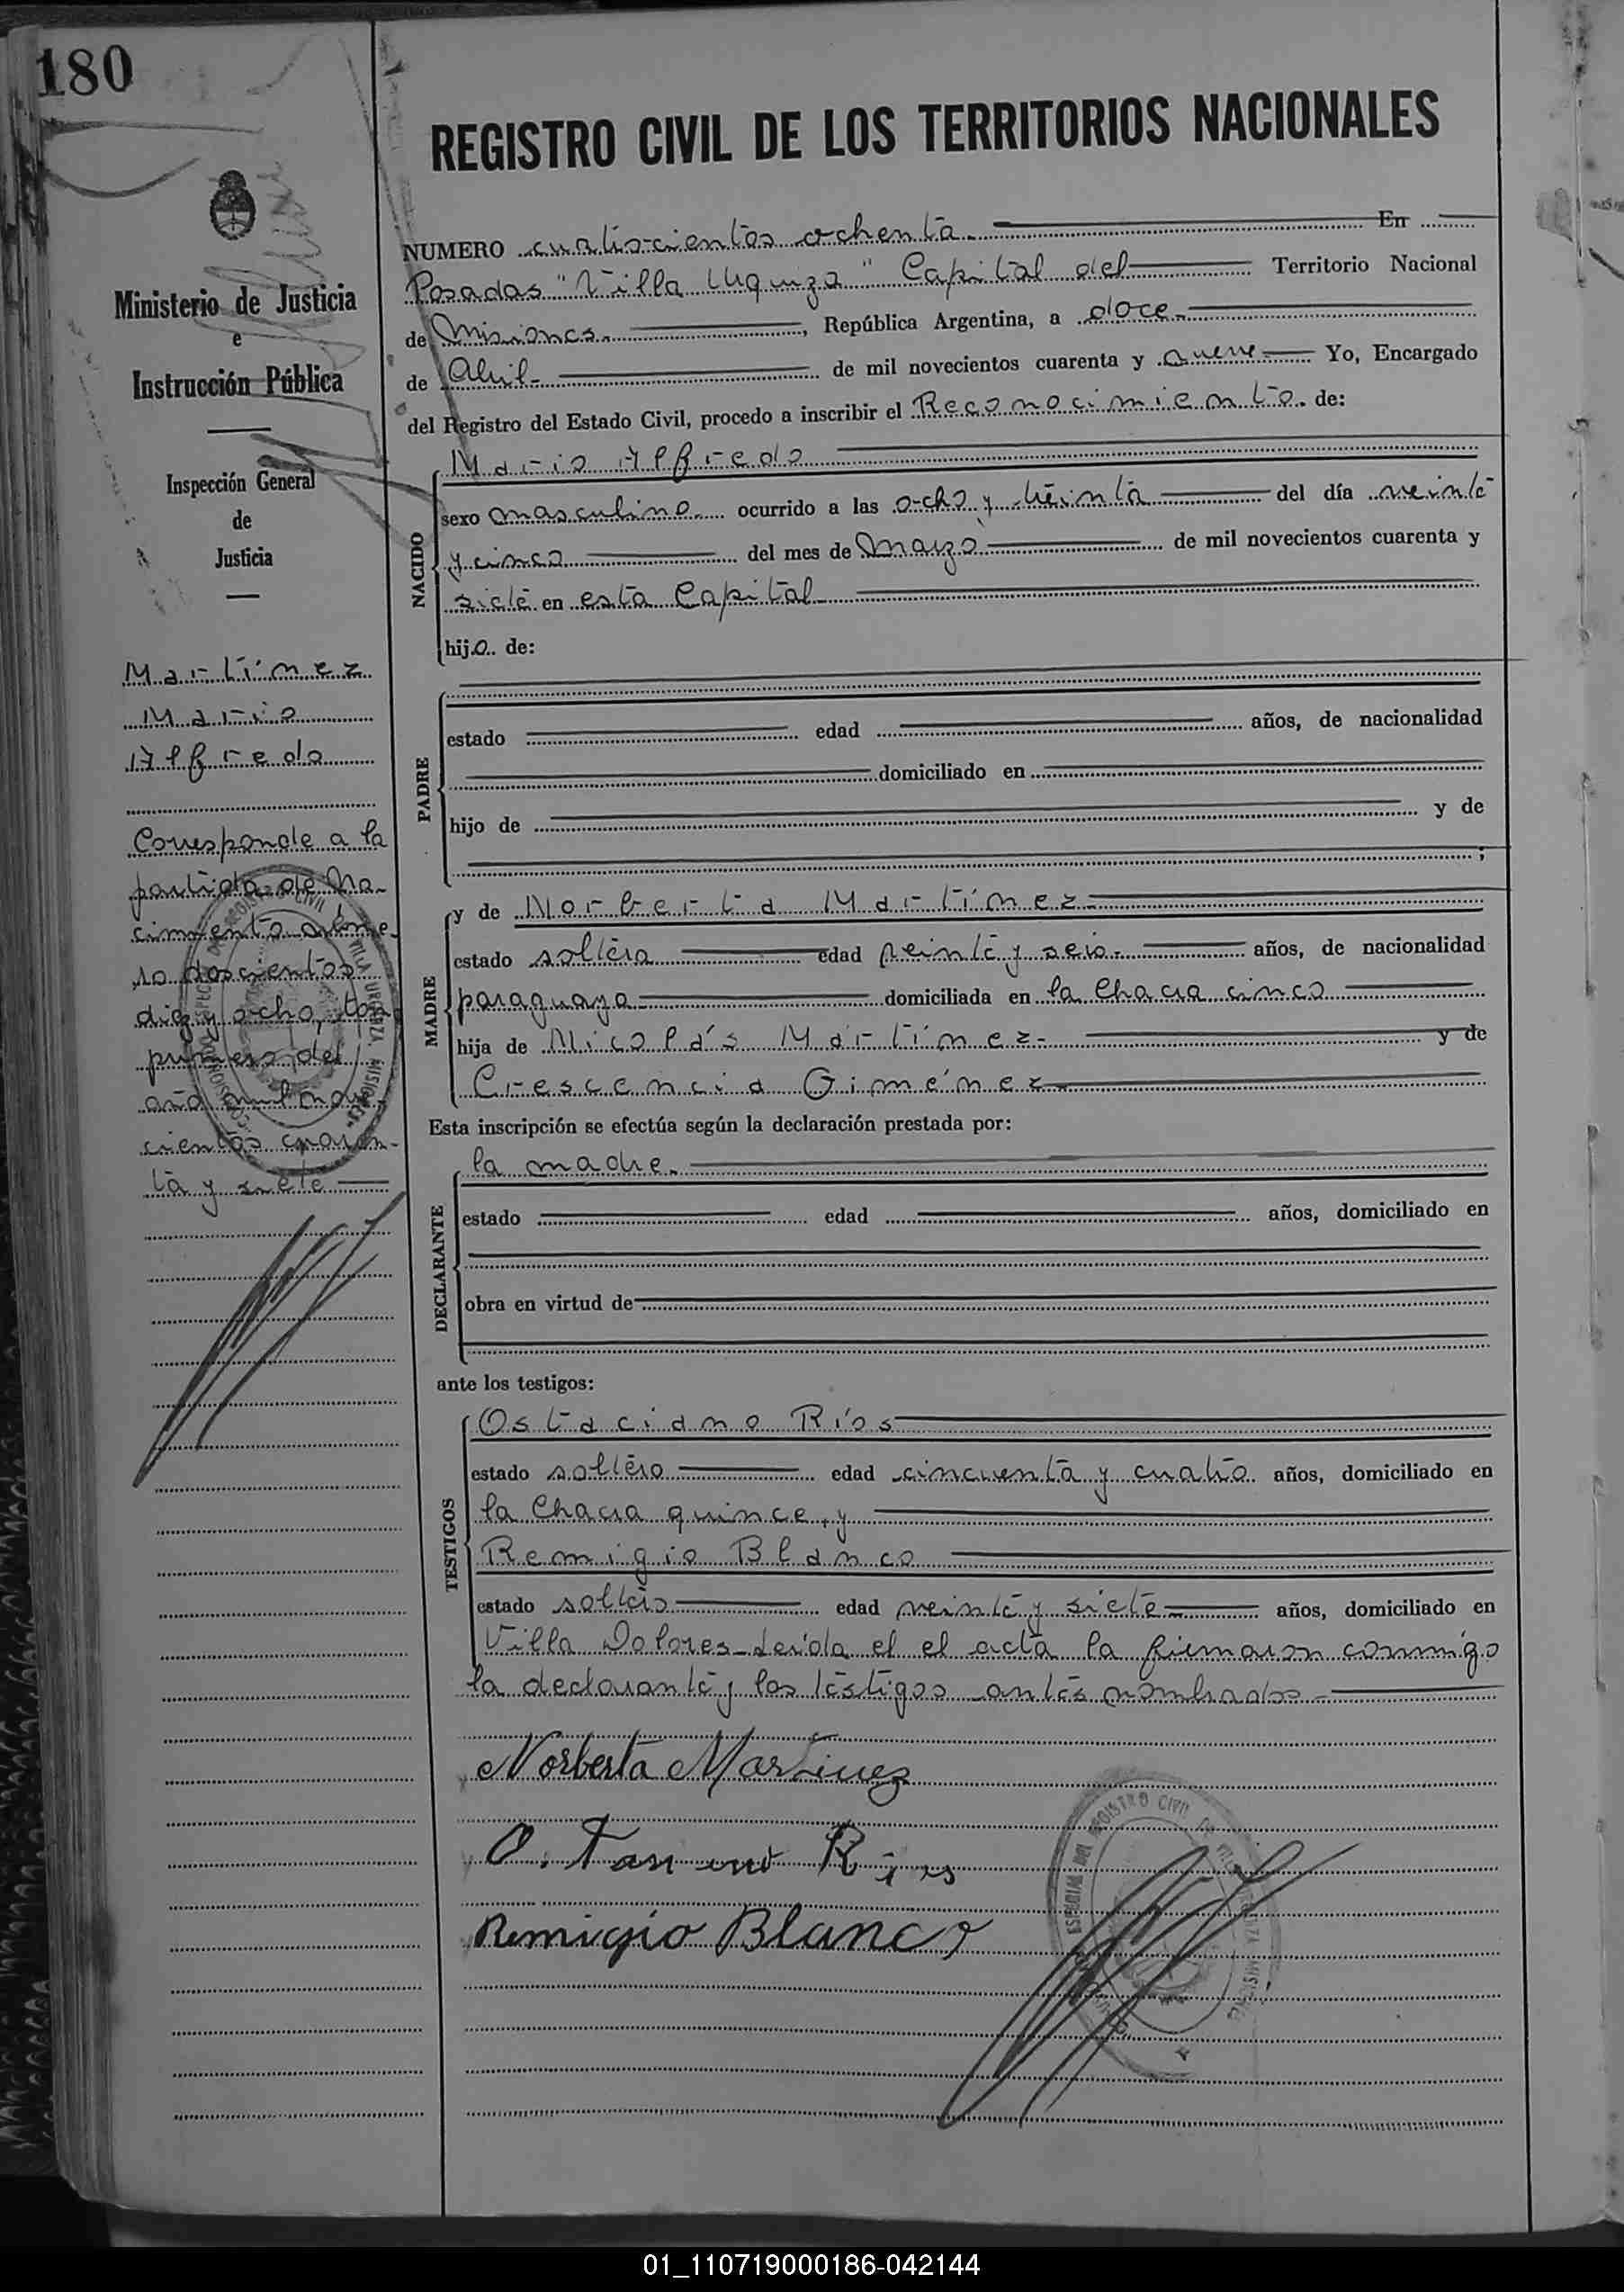 180
REGISTRO CIVIL DE LOS TERRITORIOS NACIONALES
Ministerio de Justicia
e
Instrucción Pública
Inspección General
de
Justicia
Martínez
Mario
Alfredo
Corresponde a la
partida de Na-
cimiento núme-
ro doscientos
diez y ocho, tomo
primero del
año mil nove-
cientos cuaren-
ta y siete
NUMERO cuatrocientos ochenta. En
Posadas "Villa Urquiza" Capital del Territorio Nacional
de Misiones. , República Argentina, a doce
de Abril de mil novecientos cuarenta y nueve Yo, Encargado
del Registro del Estado Civil, procedo a inscribir el Reconocimiento. de:
NACIDO
Mario Alfredo
sexo masculino ocurrido a las ocho y treinta del día veinte
y cinco del mes de Marzo de mil novecientos cuarenta y
siete en esta Capital
hijo de:
PADRE
estado edad años, de nacionalidad
domiciliado en
hijo de y de
;
MADRE
y de Norberta Martínez
estado soltera edad veinte y seis. años, de nacionalidad
paraguaya domiciliada en la Chacra cinco
hija de Nicolás Martínez y de
Crescencia Giménez
Esta inscripción se efectúa según la declaración prestada por:
DECLARANTE
la madre.
estado edad años, domiciliado en
obra en virtud de
ante los testigos:
TESTIGOS
Ostaciano Ríos
estado soltero edad cincuenta y cuatro años, domiciliado en
la Chacra quince, y
Remigio Blanco
estado soltero edad veinte y siete años, domiciliado en
Villa Dolores Leída el el acta la firmaron conmigo
la declarante y los testigos antes nombrados
Norberta Martinez
O. Ríos
Remigio Blanco
REGISTRO CIVIL
01_110719000186-042144